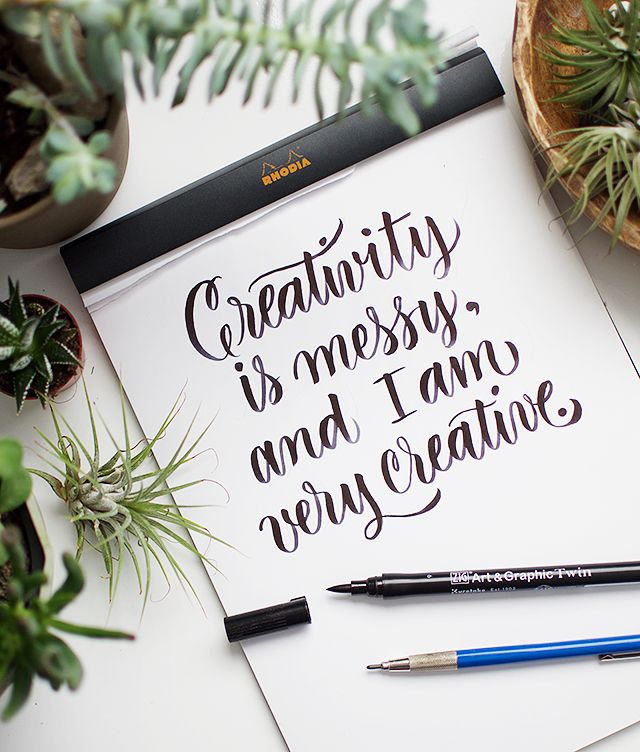 RHODIA
Creativity
is messy,
and I am
very creative.
ZIG Art & Graphic Twin
Kuretake Est 1902